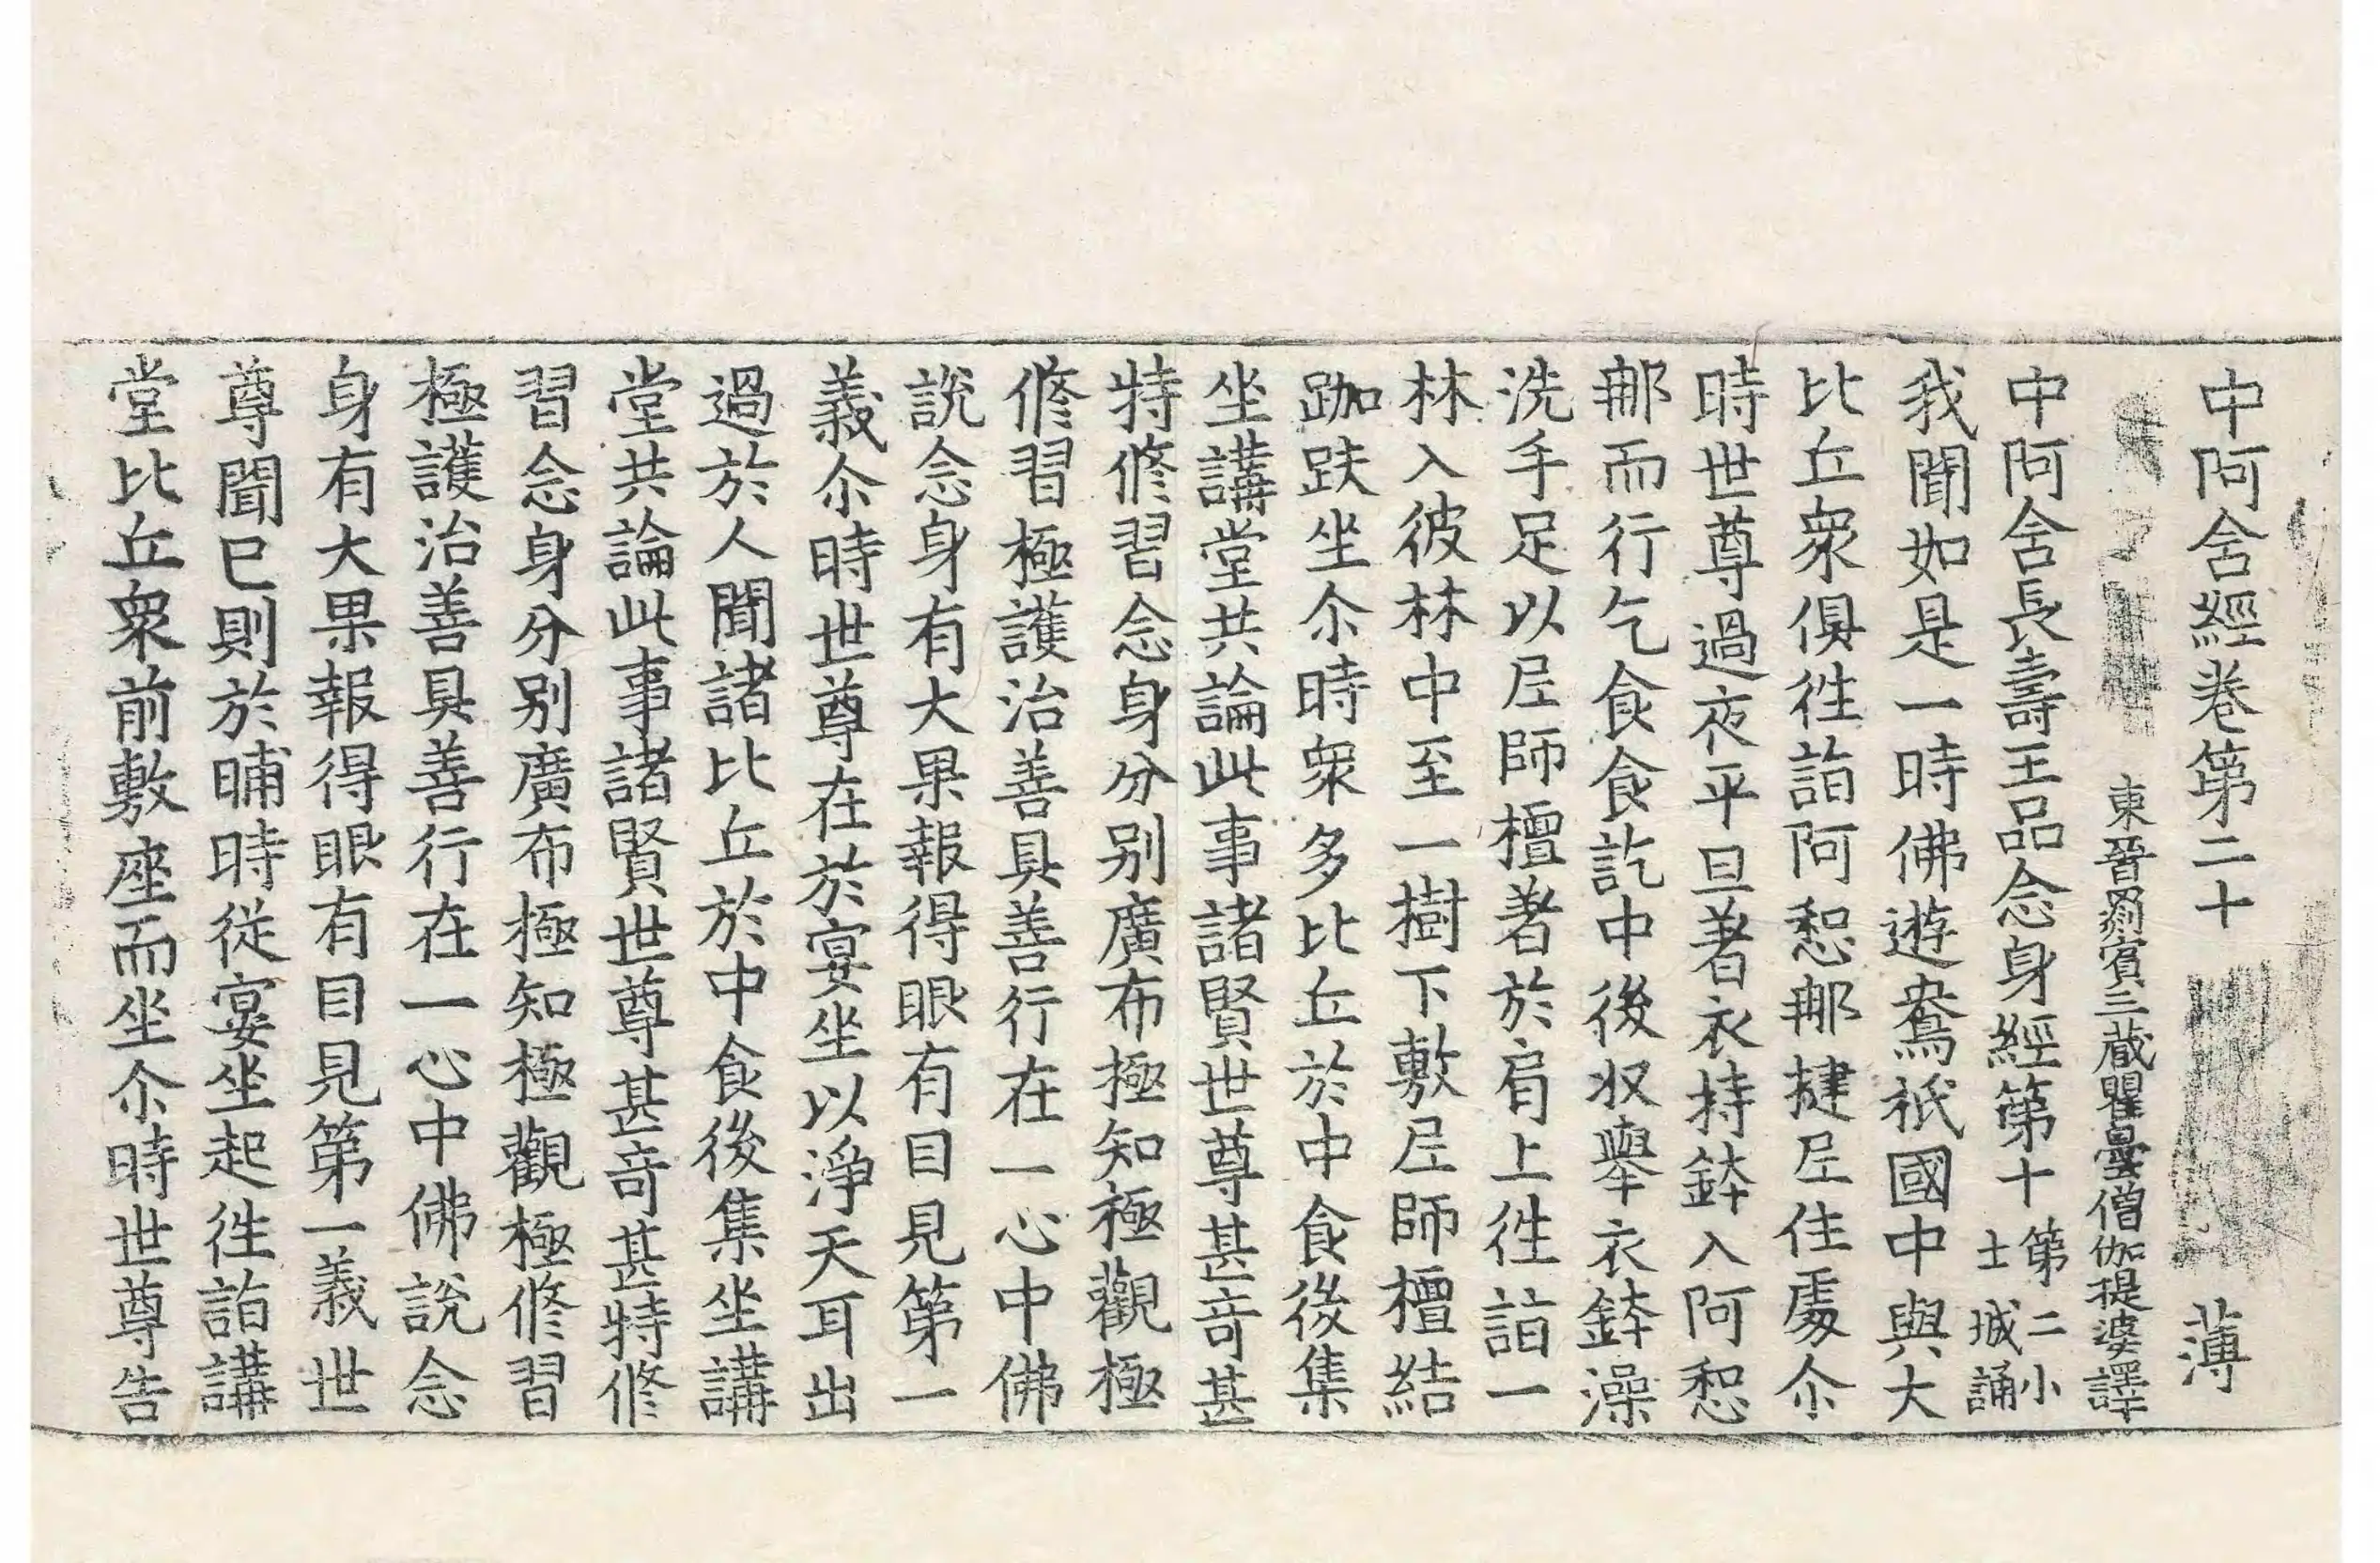 中阿含經卷第二十　薄
東晉罽賓三藏瞿曇僧伽提婆譯
中阿含長壽王品念身經第十第二小土城誦
我聞如是一時佛遊鴦祇國中與大
比丘衆俱徃詣阿惒郍揵尼住處尒
時世尊過夜平旦著衣持鉢入阿惒
郍而行乞食食訖中後収舉衣鉢澡
洗手足以尼師檀著於肩上徃詣一
林入彼林中至一樹下敷尼師檀結
跏趺坐尒時衆多比丘於中食後集
坐講堂共論此事諸賢世尊甚奇甚
特修習念身分別廣布極知極觀極
修習極護治善具善行在一心中佛
說念身有大果報得眼有目見第一
義尒時世尊在於宴坐以淨天耳出
過於人聞諸比丘於中食後集坐講
堂共論此事諸賢世尊甚奇甚特修
習念身分別廣布極知極觀極修習
極護治善具善行在一心中佛說念
身有大果報得眼有目見第一義世
尊聞已則於晡時從宴坐起徃詣講
堂比丘衆前敷座而坐尒時世尊告